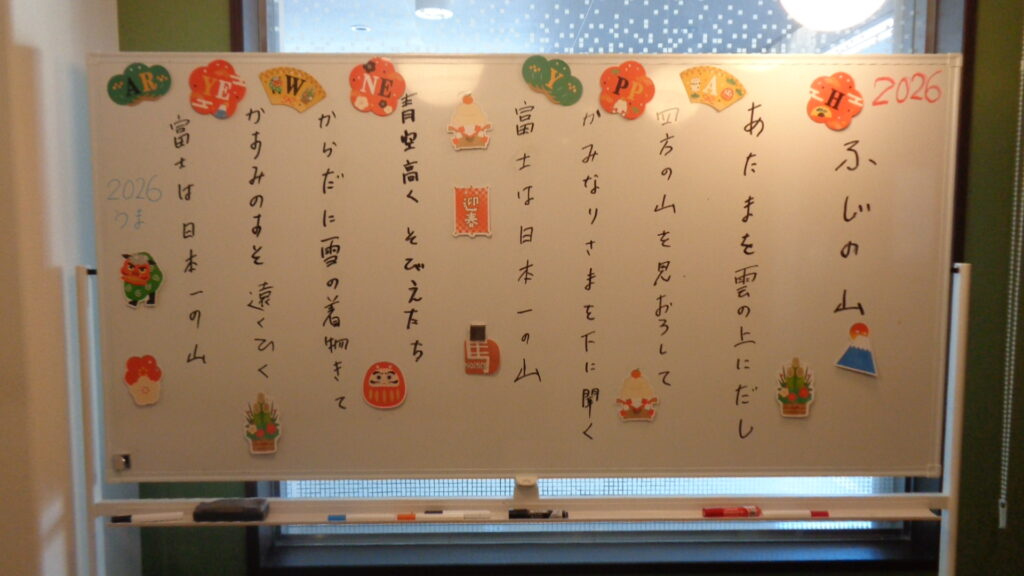 2026
H
A
PP
Y
NE
W
YE
AR
ふじの山
あたまを雲の上にだし
四方の山を見おろして
かみなりさまを下に聞く
富士は日本一の山
迎春
青空高くそびえたち
からだに雪の着物きて
かすみのすそ遠くひく
富士は日本一の山
2026
うま